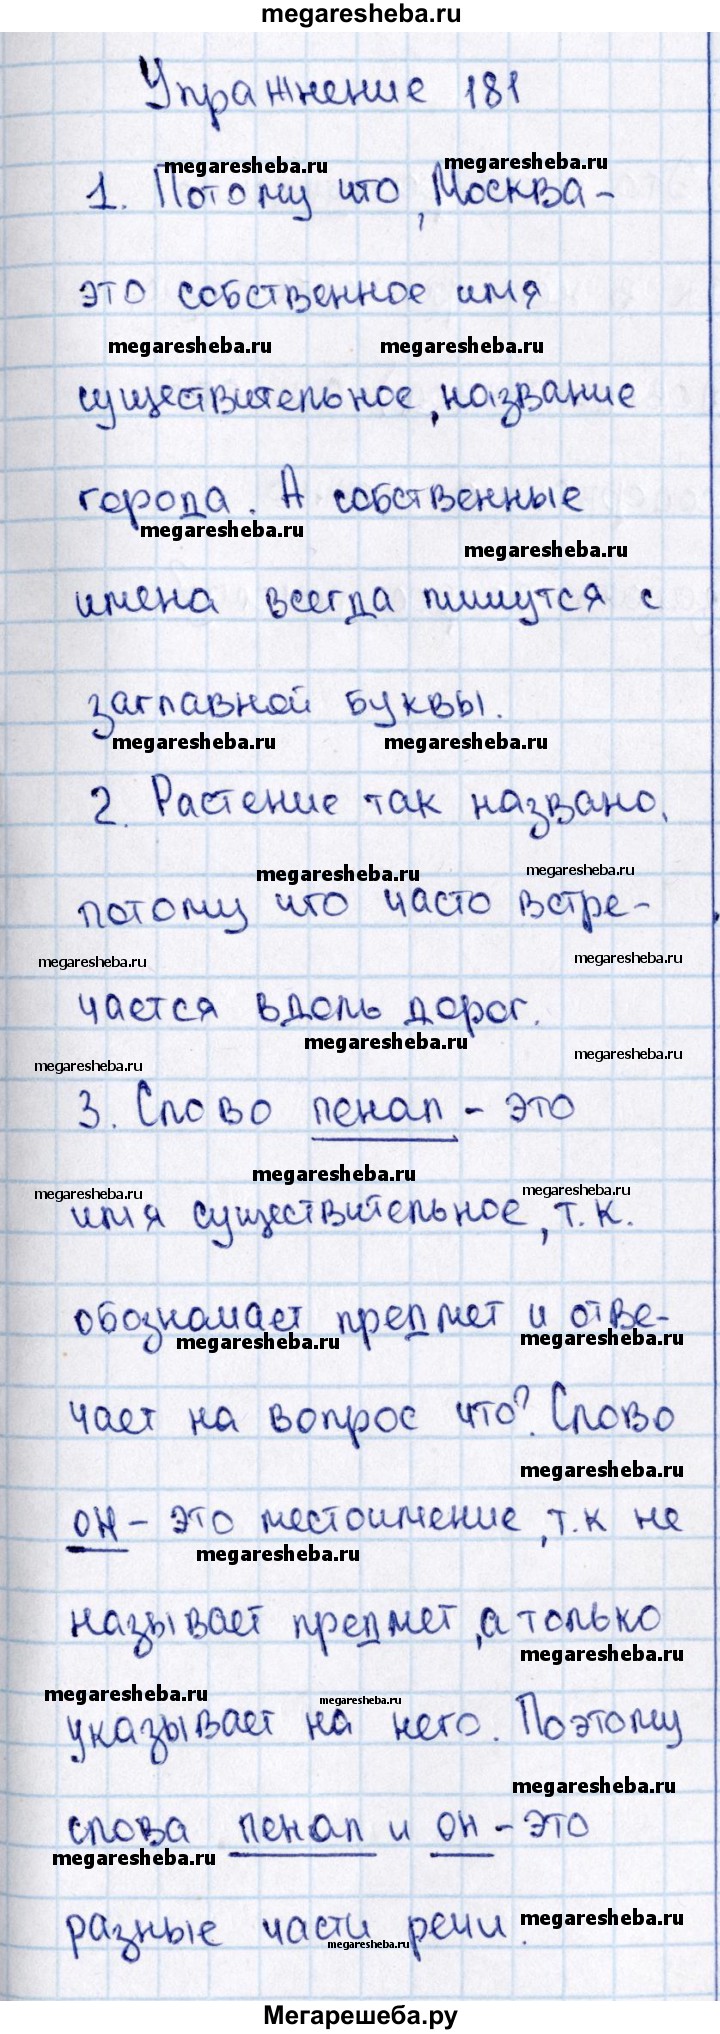 megaresheba.ru
Упражнение 181
megaresheba.ru megaresheba.ru
1. Потому что, Москва -
это собственное имя
megaresheba.ru megaresheba.ru
существительное, название
города. А собственные
megaresheba.ru megaresheba.ru
имена всегда пишутся с
заглавной буквы.
megaresheba.ru megaresheba.ru
2. Растение так названо,
megaresheba.ru megaresheba.ru
потому что часто встре-
megaresheba.ru megaresheba.ru
чается вдоль дорог.
megaresheba.ru megaresheba.ru megaresheba.ru
3. Слово пенал - это
megaresheba.ru megaresheba.ru megaresheba.ru
имя существительное, т.к.
обозначает предмет и отве-
megaresheba.ru megaresheba.ru
чает на вопрос что? Слово
megaresheba.ru
он - это местоимение, т.к не
megaresheba.ru
называет предмет, а только
megaresheba.ru
megaresheba.ru megaresheba.ru
указывает на него. Поэтому
megaresheba.ru
слова пенал и он - это
megaresheba.ru
разные части речи.
megaresheba.ru megaresheba.ru
Мегарешеба.ру